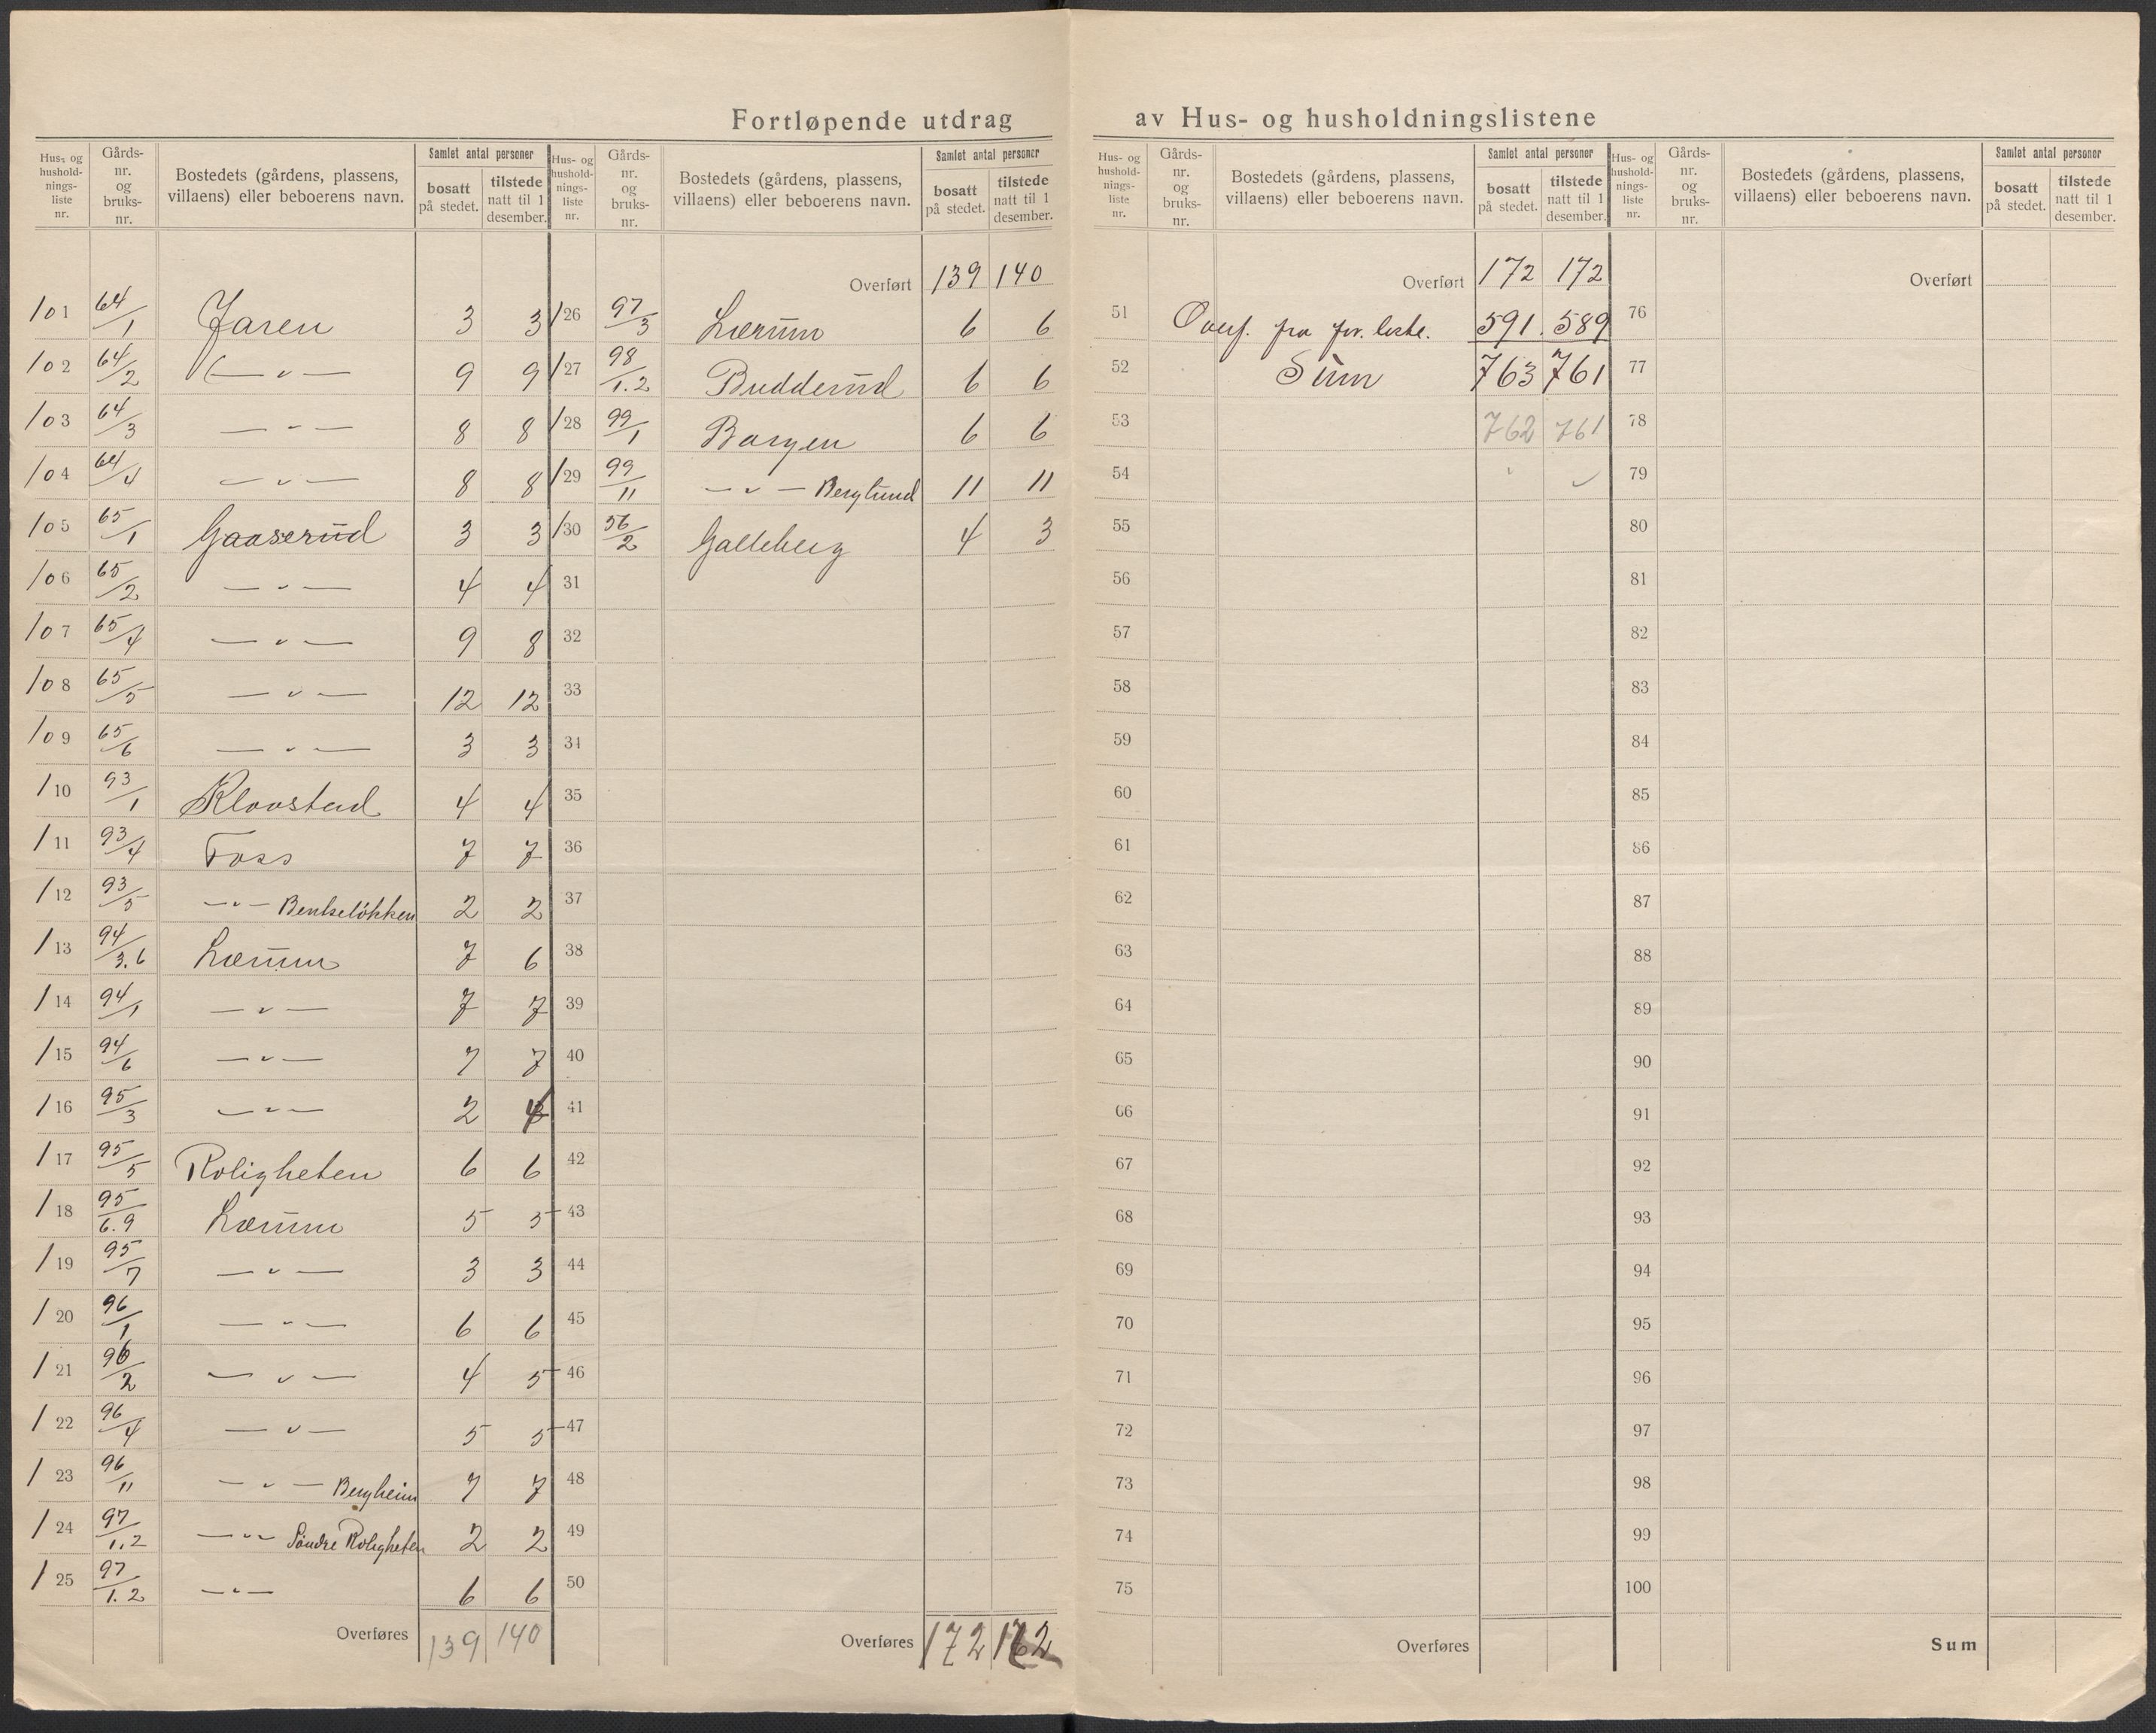 Fortløpende utdrag av Hus- og husholdningslistene
Hus- og hushold-nings-liste nr. | Gårds-nr. og bruks-nr. | Bostedets (gårdens, plassens, villaens) eller beboerens navn. | Samlet antal personer | bosatt på stedet. | tilstede natt til 1 desember.
101 64/1 Jaren 3 3
102 64/2 — " — 9 9
103 64/3 — " — 8 8
104 64/4 — " — 8 8
105 65/1 Gaaserud 3 3
106 65/2 — " — 4 4
107 65/4 — " — 9 8
108 65/5 — " — 12 12
109 65/6 — " — 3 3
110 93/1 Klovstad 4 4
111 93/4 Foss 7 7
112 93/5 — " — Benkeløkken 2 2
113 94/3.6 Lærum 7 6
114 94/1 — " — 7 7
115 94/6 — " — 7 7
116 95/3 — " — 2
117 95/5 Roligheten 6 6
118 95/6.9 Lærum 5 5
119 95/7 — " — 3 3
120 96/1 — " — 6 6
121 96/2 — " — 4 5
122 96/4 — " — 5 5
123 96/11 — " — Bergheim 7 7
124 97/1.2 — " — Søndre Roligheten 2 2
125 97/1.2 — " — 6 6
Overføres 139 140
Hus- og hushold-nings-liste nr. | Gårds-nr. og bruks-nr. | Bostedets (gårdens, plassens, villaens) eller beboerens navn. | Samlet antal personer | bosatt på stedet. | tilstede natt til 1 desember.
Overført 139 140
126 97/3 Lærum 6 6
127 98/1.2 Budderud 6 6
128 99/1 Bergen 6 6
129 99/11 — " — Berglund 11 11
130 56/2 Galleberg 4 3
31
32
33
34
35
36
37
38
39
40
41
42
43
44
45
46
47
48
49
50
Overføres 172 172
Hus- og hushold-nings-liste nr. | Gårds-nr. og bruks-nr. | Bostedets (gårdens, plassens, villaens) eller beboerens navn. | Samlet antal personer | bosatt på stedet. | tilstede natt til 1 desember.
Overført 172 172
51 Overf. fra for. liste. 591. 589
52 Sum 763 761
53 762 761
54
55
56
57
58
59
60
61
62
63
64
65
66
67
68
69
70
71
72
73
74
75
Overføres
Hus- og hushold-nings-liste nr. | Gårds-nr. og bruks-nr. | Bostedets (gårdens, plassens, villaens) eller beboerens navn. | Samlet antal personer | bosatt på stedet. | tilstede natt til 1 desember.
Overført
76
77
78
79
80
81
82
83
84
85
86
87
88
89
90
91
92
93
94
95
96
97
98
99
100
Sum